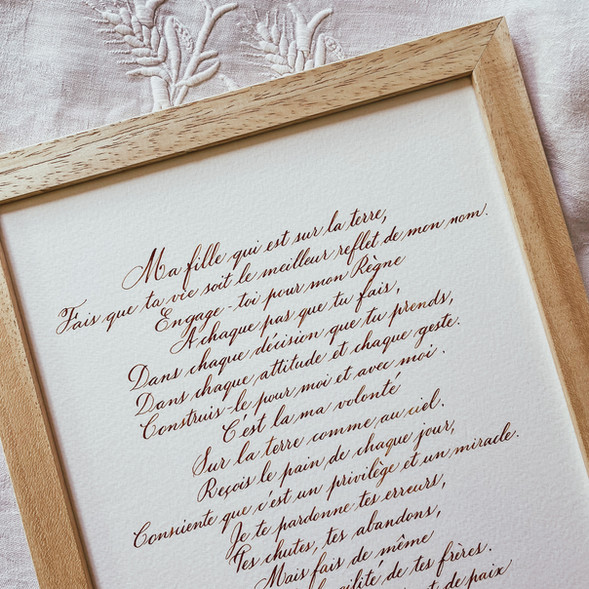 Ma fille qui est sur la terre,
Fais que ta vie soit le meilleur reflet de mon nom.
Engage-toi pour mon Règne
A chaque pas que tu fais,
Dans chaque décision que tu prends,
Dans chaque attitude et chaque geste.
Construis-le pour moi et avec moi.
C'est la ma volonté
Sur la terre comme au ciel.
Reçois le pain de chaque jour,
Consciente que c'est un privilège et un miracle.
Je te pardonne tes erreurs,
Tes chutes, tes abandons,
Mais fais de même
de tes frères.
de paix